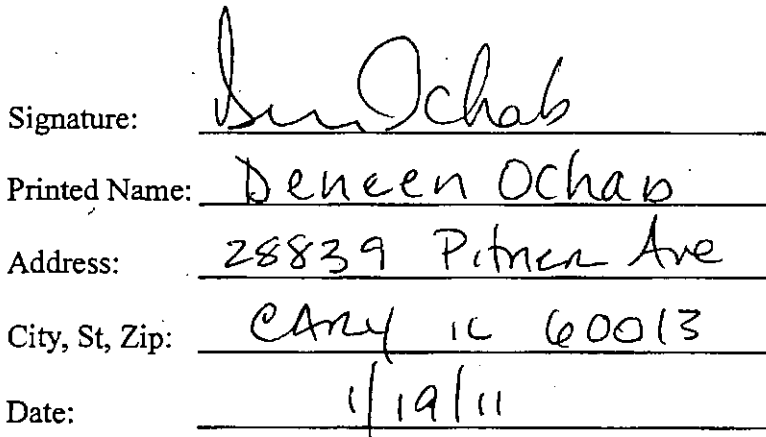 Signature: Ochab
Printed Name: Deneen Ochab
Address: 28839 Pitner Ave
City, St, Zip: CARY IL 60013
Date: 1/19/11